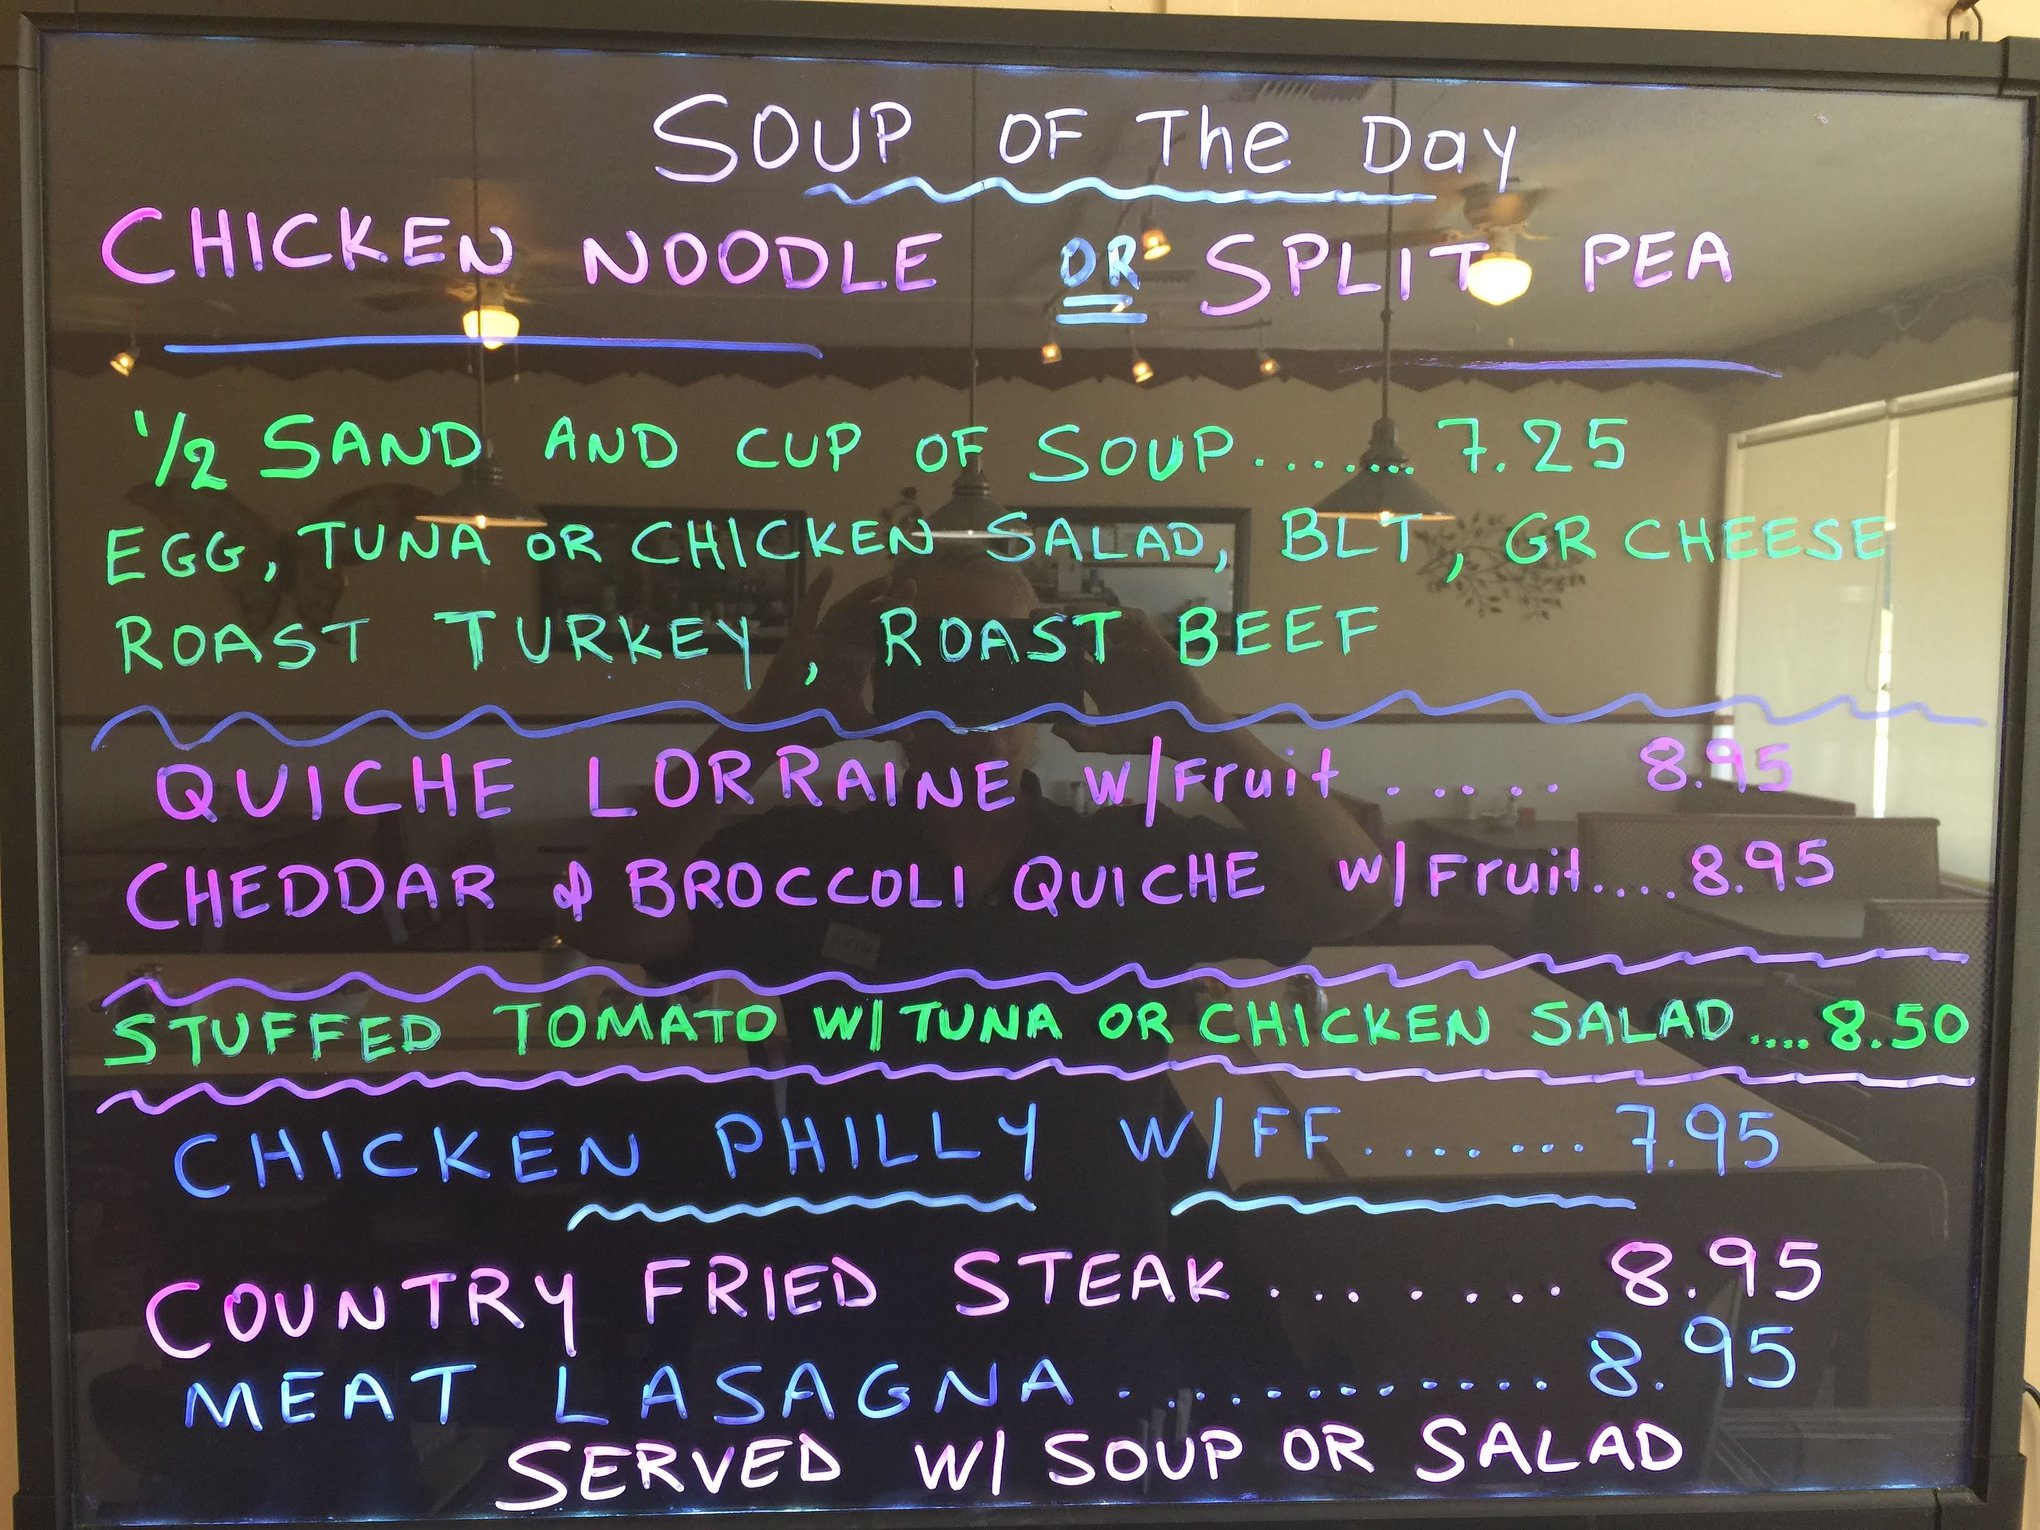 SOUP OF The Day
CHICKEN NOODLE OR SPLIT PEA
1/2 SAND AND CUP OF SOUP....... 7.25
EGG, TUNA OR CHICKEN SALAD, BLT, GR CHEESE
ROAST TURKEY, ROAST BEEF
QUICHE LORRAINE w/Fruit ..... 8.95
CHEDDAR & BROCCOLI QUICHE w/Fruit....8.95
STUFFED TOMATO W/TUNA OR CHICKEN SALAD....8.50
CHICKEN PHILLY W/FF........7.95
COUNTRY FRIED STEAK........8.95
MEAT LASAGNA............8.95
SERVED W/ SOUP OR SALAD